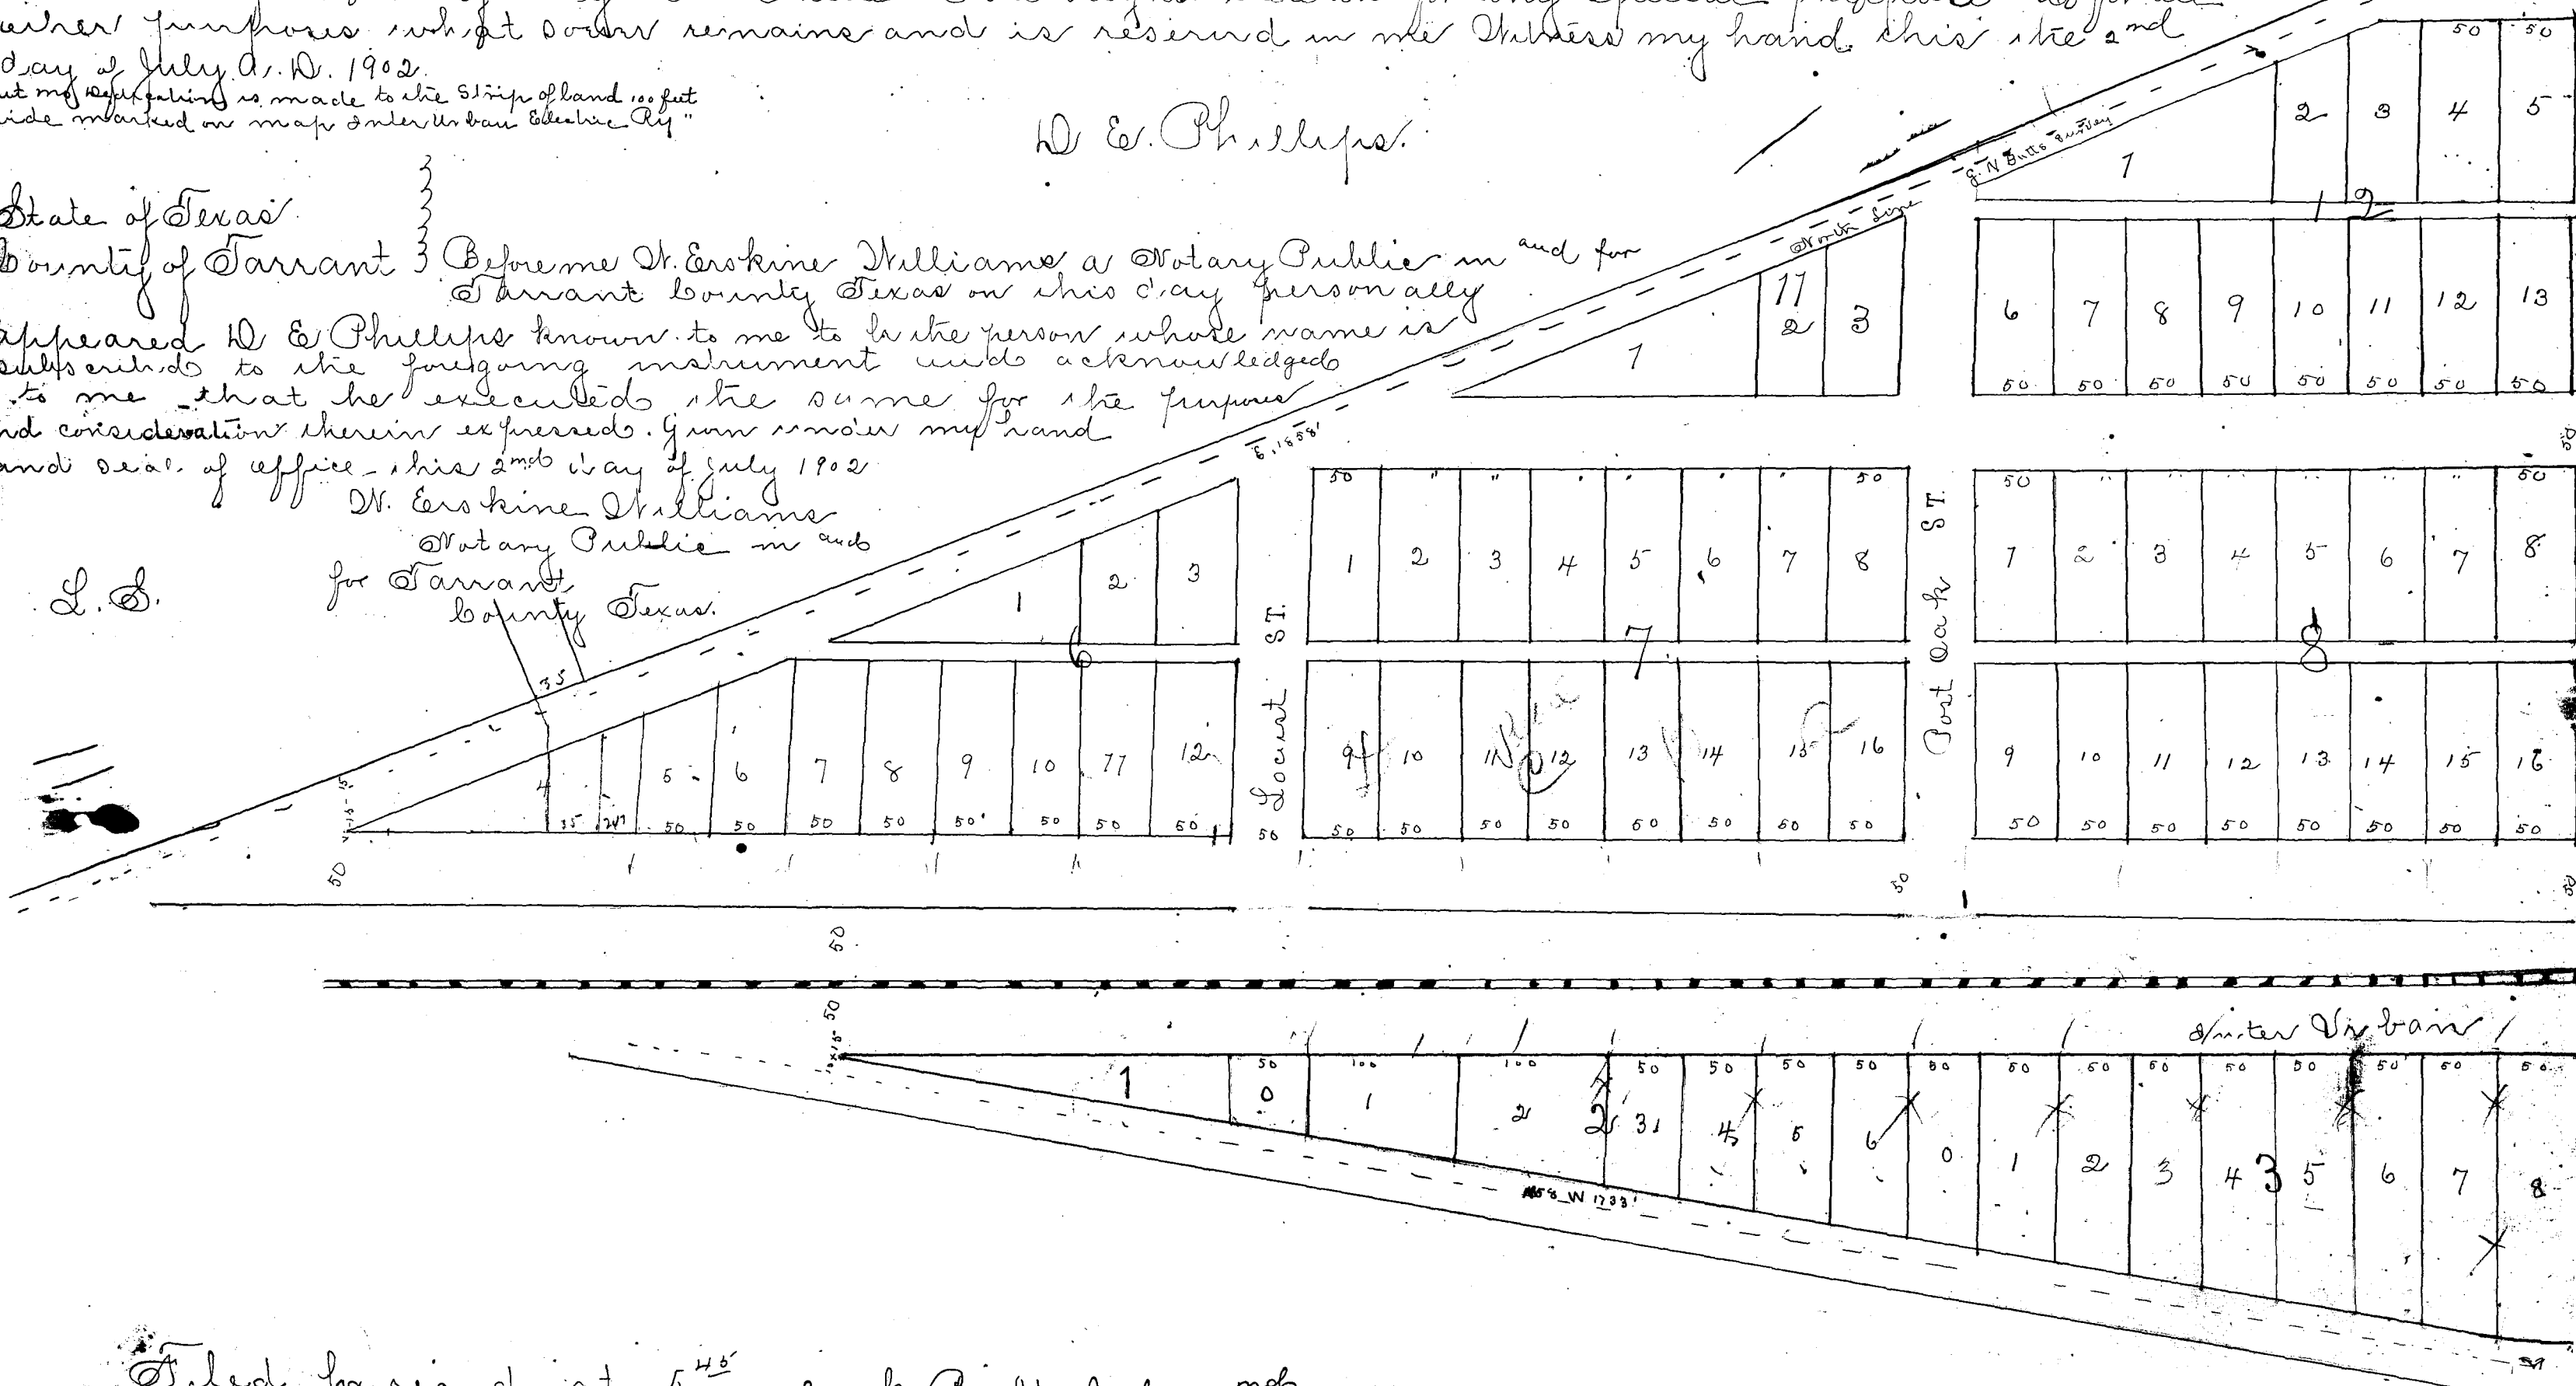 other purposes what soever remains and is reserved in me Witness my hand this the 2nd
day of July A. D. 1902
ut no Dedication is made to the Strip of land 100 feet
ide marked on map Inter Urban Electric Ry"
D E. Phillips.
State of Texas
County of Tarrant } Before me W. Erskine Williams a Notary Public in and for
Tarrant County Texas on this day personally
appeared D E Phillips known to me to be the person whose name is
subscribed to the foregoing instrument and acknowledged
to me that he executed the same for the purposes
nd consideration therein expressed. Given under my hand
and seal of office this 2nd day of July 1902
W. Erskine Williams
Notary Public in and
for Tarrant
County Texas.
L. S.
J. N Butts Survey
North Line
50 50
1 2 3 4 5
12
6 7 8 9 10 11 12 13
50 50 50 50 50 50 50 50
11
1 2 3
50 " " 50
1 2 3 4 5 6 7 8
7
9 10 11 12 13 14 15 16
50 50 50 50 50 50 50 50
50 50
1 2 3 4 5 6 7 8
8
9 10 11 12 13 14 15 16
50 50 50 50 50 50 50 50
1 2 3
6
35
4 5 6 7 8 9 10 11 12
35 50 50 50 50 50 50 50 50
Locust ST.
50
Post Oak ST.
50 50
50
50
Inter Urban
50 100 100 50 50 50 50 50 50 50 50 50 50 50 50 50
1 0 1 2 2 3 4 5 6 0 1 2 3 4 3 5 6 7 8
W 1733'
Filed